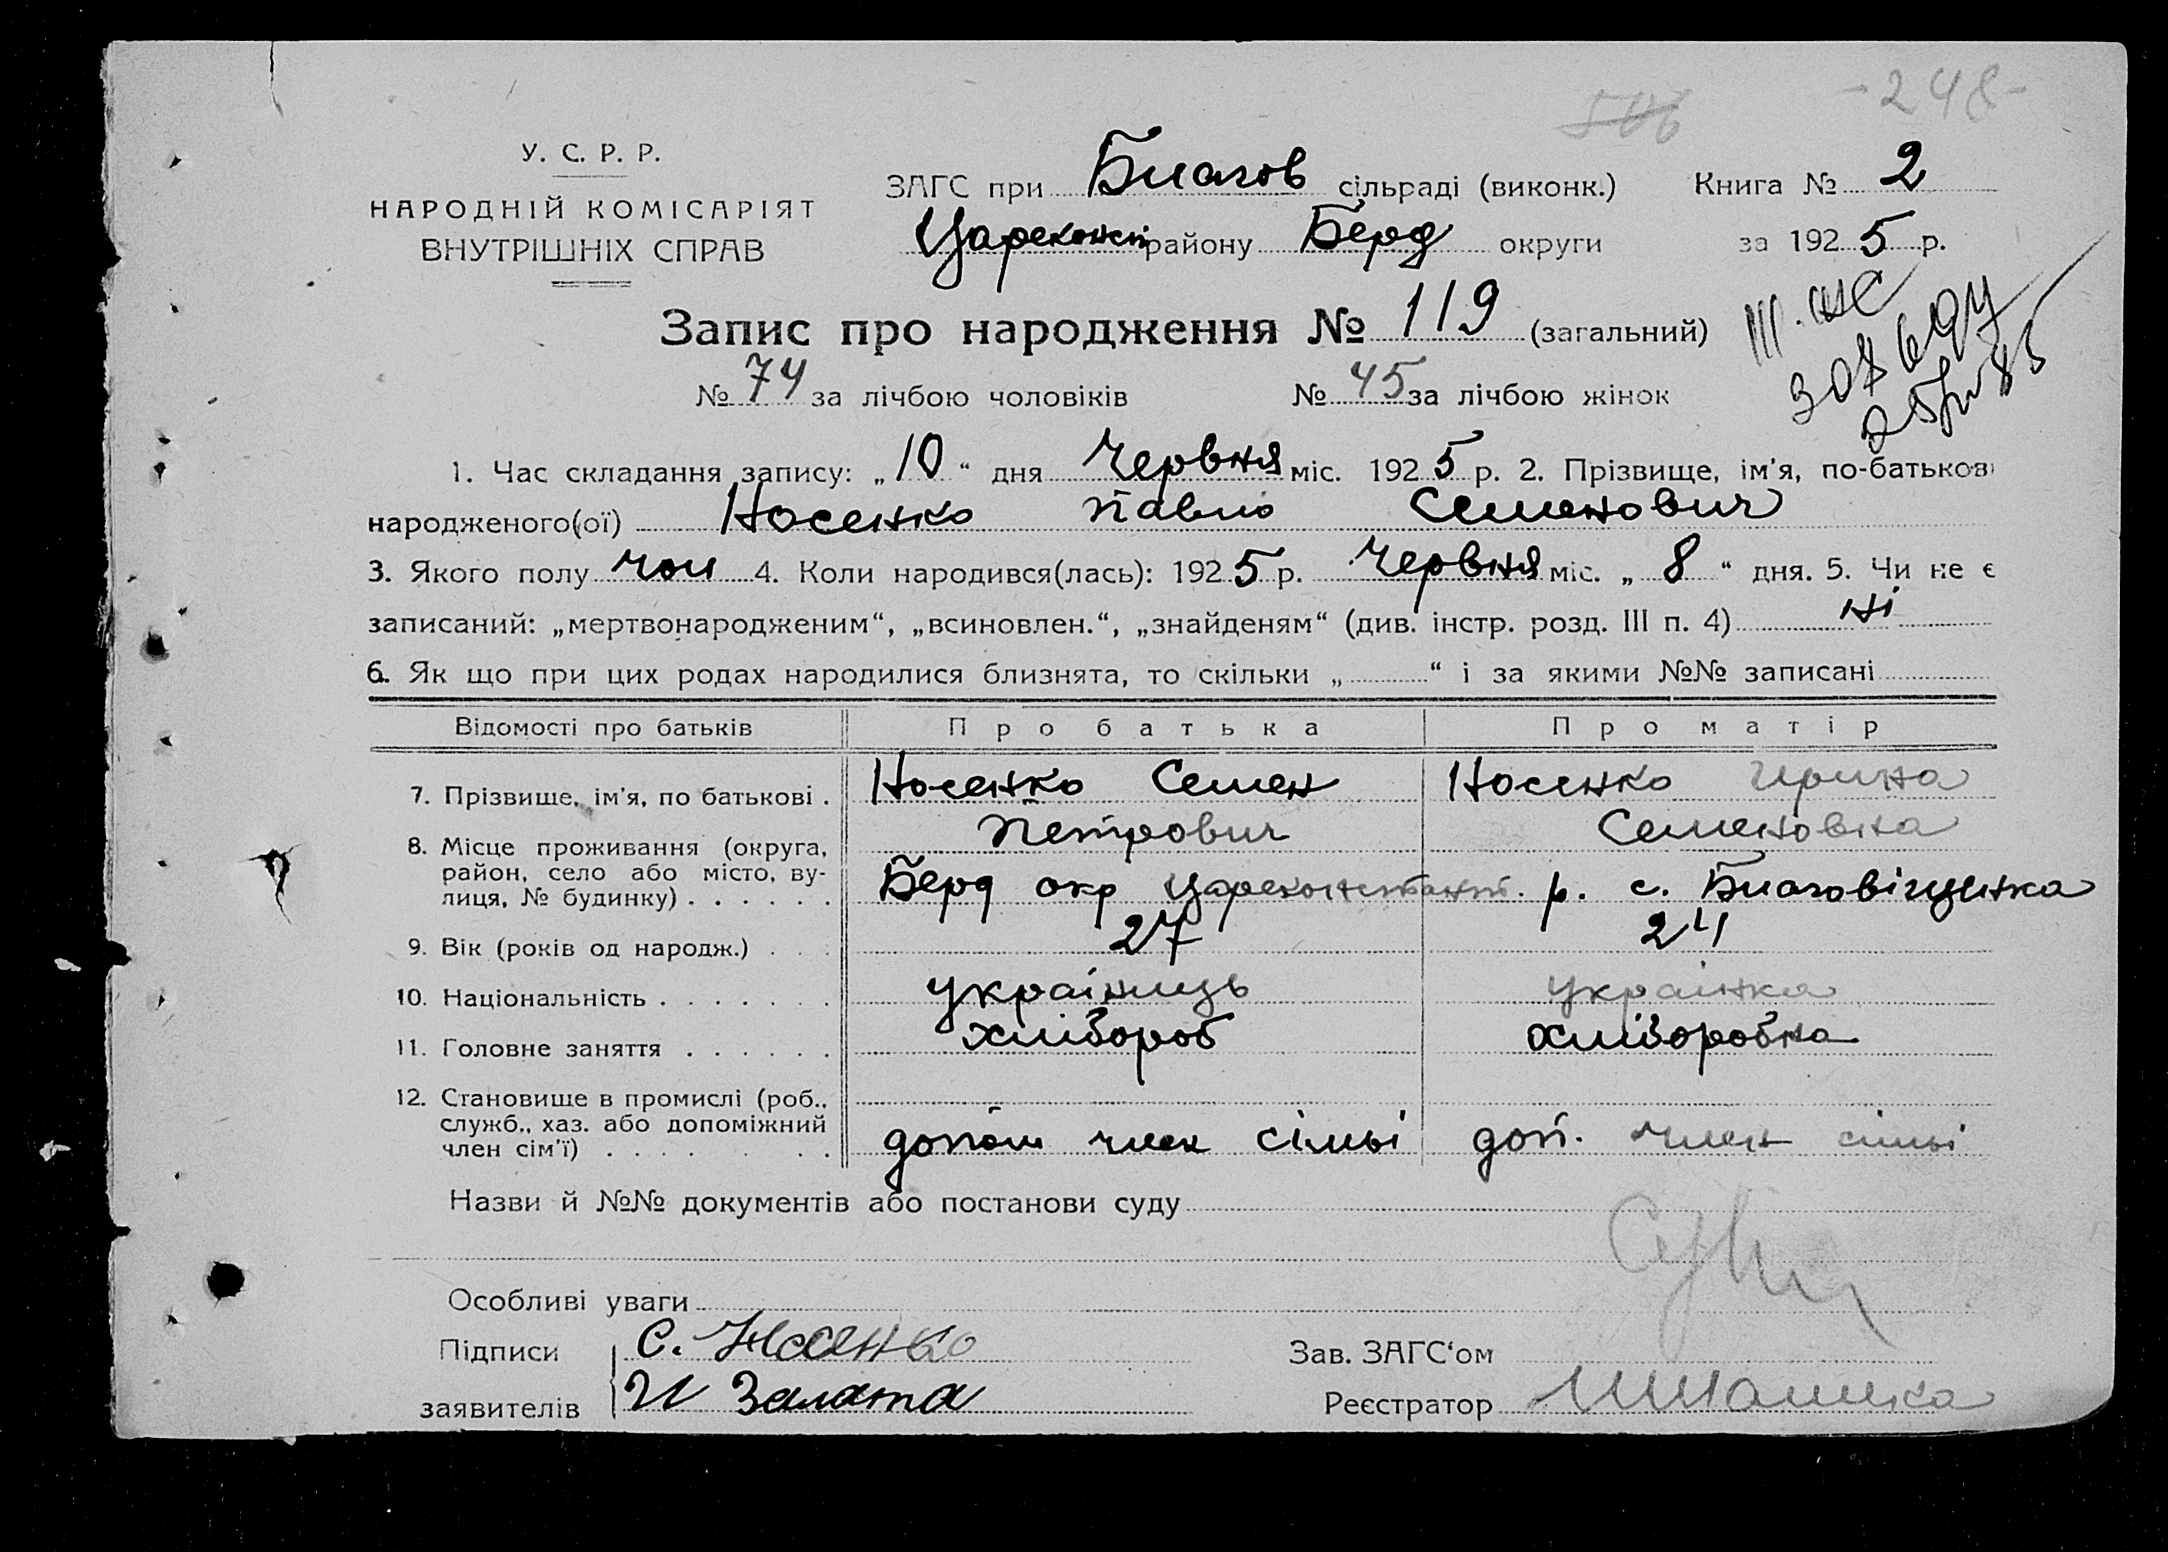 -248-
506
У. С. Р. Р.
НАРОДНІЙ КОМІСАРІЯТ
ВНУТРІШНІХ СПРАВ
ЗАГС при Благов сільраді (виконк.) Книга № 2
Цареконст району Берд округи за 1925 р.
Запис про народження № 119 (загальний)
№ 74 за лічбою чоловіків № 45 за лічбою жінок
1. Час складання запису: „10“ дня Червня міс. 1925 р. 2. Прізвище, ім'я, по-батькові
народженого(ої) Носенко Павло Семенович
3. Якого полу чол 4. Коли народився(лась): 1925 р. Червня міс. „8“ дня. 5. Чи не є
записаний: „мертвонародженим“, „всиновлен.“, „знайденям“ (див. інстр. розд. III п. 4) ні
6. Як що при цих родах народилися близнята, то скільки „ “ і за якими №№ записані
Відомості про батьків Про батька Про матір
7. Прізвище, ім'я, по батькові . Носенко Семен Петрович Носенко Ирина Семеновна
8. Місце проживання (округа,
район, село або місто, ву-
лиця, № будинку) . . . . . . Берд окр Цареконстант. р. с. Благовіщенка
9. Вік (років од народж.) . . . 27 24
10. Національність . . . . . . . україниць українка
11. Головне заняття . . . . . . хлібороб хліборобка
12. Становище в промислі (роб.,
служб., хаз. або допоміжний
член сім'ї) . . . . . . допом член сімьі доп. член сімьі
Назви й №№ документів або постанови суду
Особливі уваги
Підписи С. Носенко Зав. ЗАГС‘ом
заявителів И Залата Реєстратор